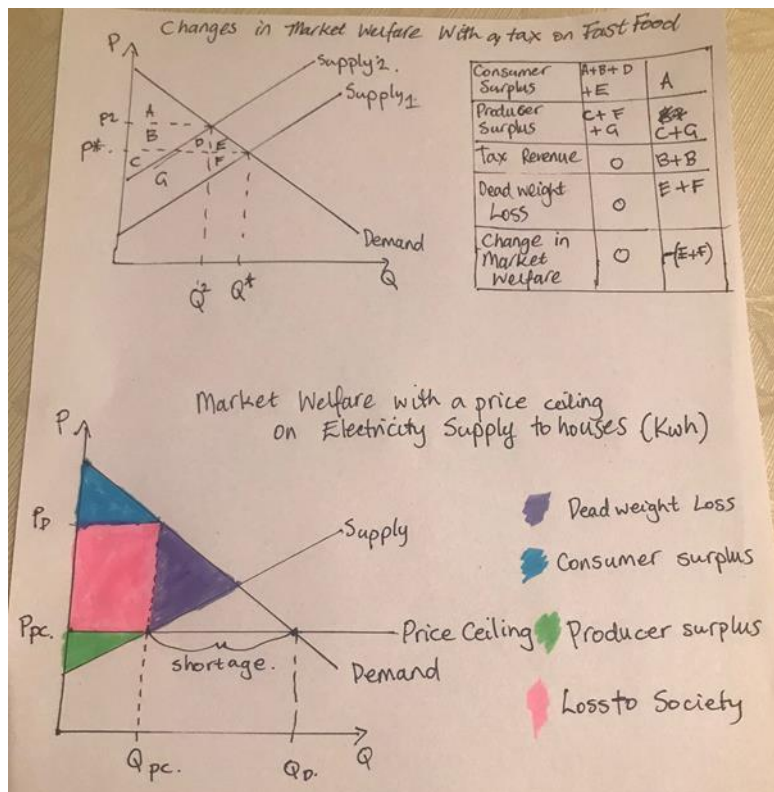 Changes in Market Welfare With a tax on Fast Food
P
Supply 2.
Supply 1
P2
A
B
P*
D
E
C
F
G
Demand
Q2
Q*
Q
Consumer Surplus
A+B+D+E
A
Producer Surplus
C+F+G
C+G
Tax Revenue
0
B+B
Dead weight Loss
0
E+F
Change in Market Welfare
0
-(E+F)
Market Welfare with a price ceiling
on Electricity Supply to houses (Kwh)
P
PD
Supply
Ppc.
Price Ceiling
shortage.
Demand
Qpc.
QD.
Q
Dead weight Loss
Consumer surplus
Producer surplus
Loss to Society